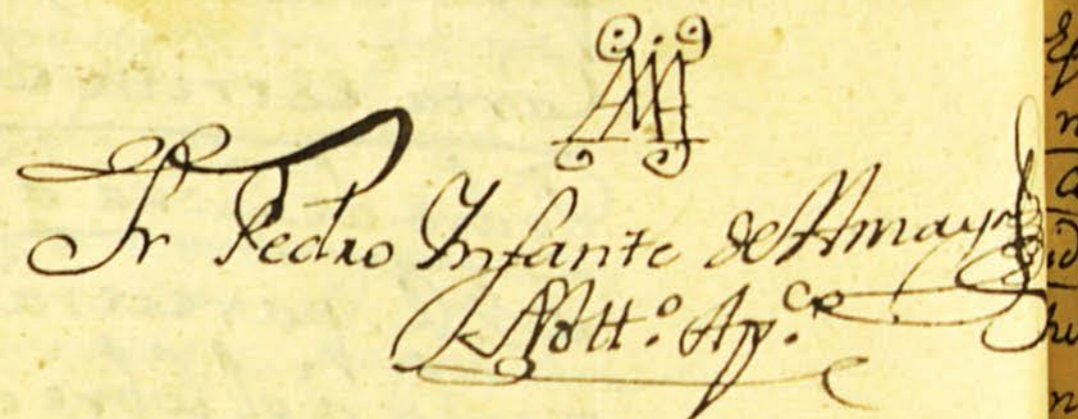 Fr Pedro Infante de Amaya
Nott.º App.co